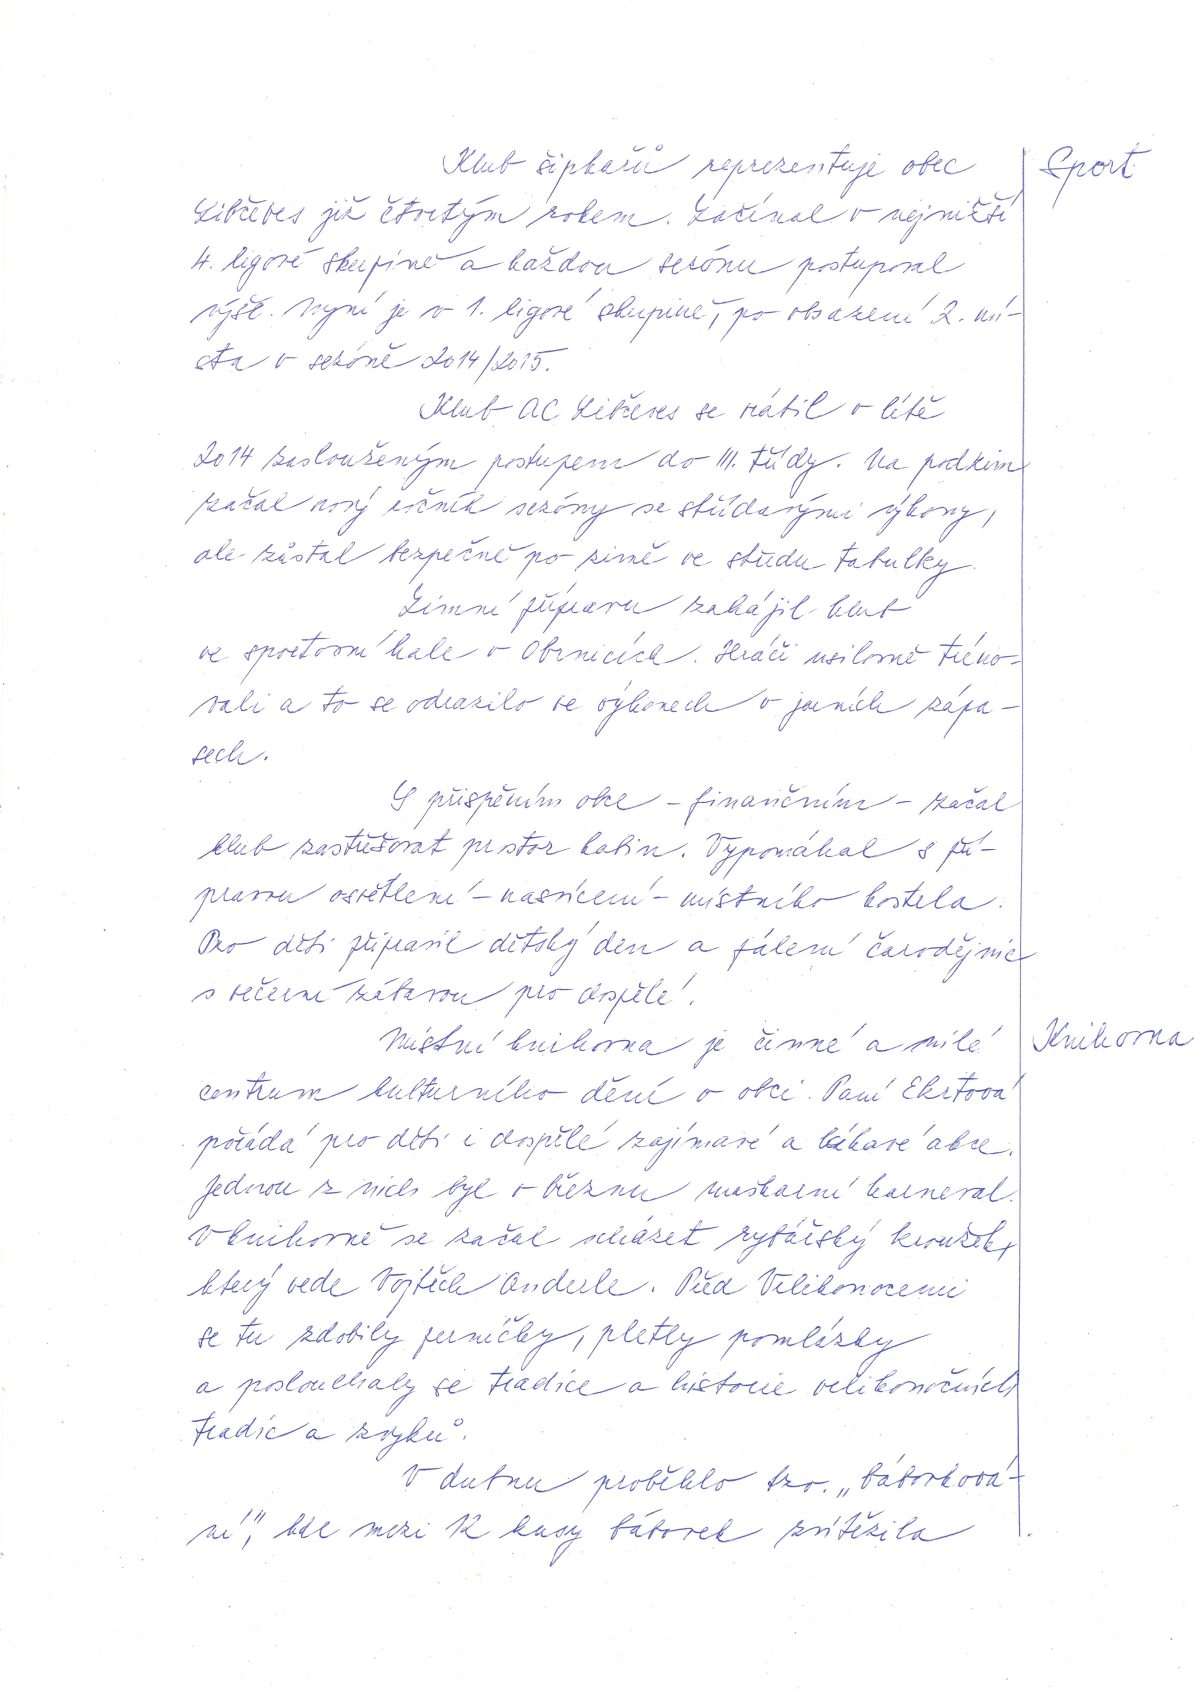 Klub šipkařů reprezentuje obec
Sport
Libčeves již čtvrtým rokem. Začínal v nejnižší
4. ligové skupině a každou sezónu postupoval
výše. Nyní je v 1. ligové skupině, po obsazení 2. mí-
sta v sezóně 2014/2015.
Klub AC Libčeves se vrátil v létě
2014 zaslouženým postupem do III. třídy. Na podzim
začal nový ročník sezóny se střídavými výkony,
ale zůstal bezpečně po zimě ve středu tabulky.
Zimní přípravu zahájil klub
ve sportovní hale v Obrnicích. Hráči usilovně tréno-
vali a to se odrazilo ve výkonech v jarních zápa-
sech.
S přispěním obce - finančním - začal
klub zastřešovat prostor kabin. Vypomáhal s pří-
pravou osvětlení - nasvícení - místního kostela.
Pro děti připravil dětský den a pálení čarodějnic
s večerní zábavou pro dospělé.
Místní knihovna je činné a milé
Knihovna
centrum kulturního dění v obci. Paní Ekrtová
pořádá pro děti i dospělé zajímavé a lákavé akce.
Jednou z nich byl v březnu maškarní karneval.
V knihovně se začal scházet rybářský kroužek,
který vede Vojtěch Anderle. Před Velikonocemi
se tu zdobily perníčky, pletly pomlázky
a poslouchaly se tradice a historie velikonočních
tradic a zvyků.
V dubnu proběhlo tzv. „bábovková-
ní", kde mezi 12 kusy bábovek zvítězila